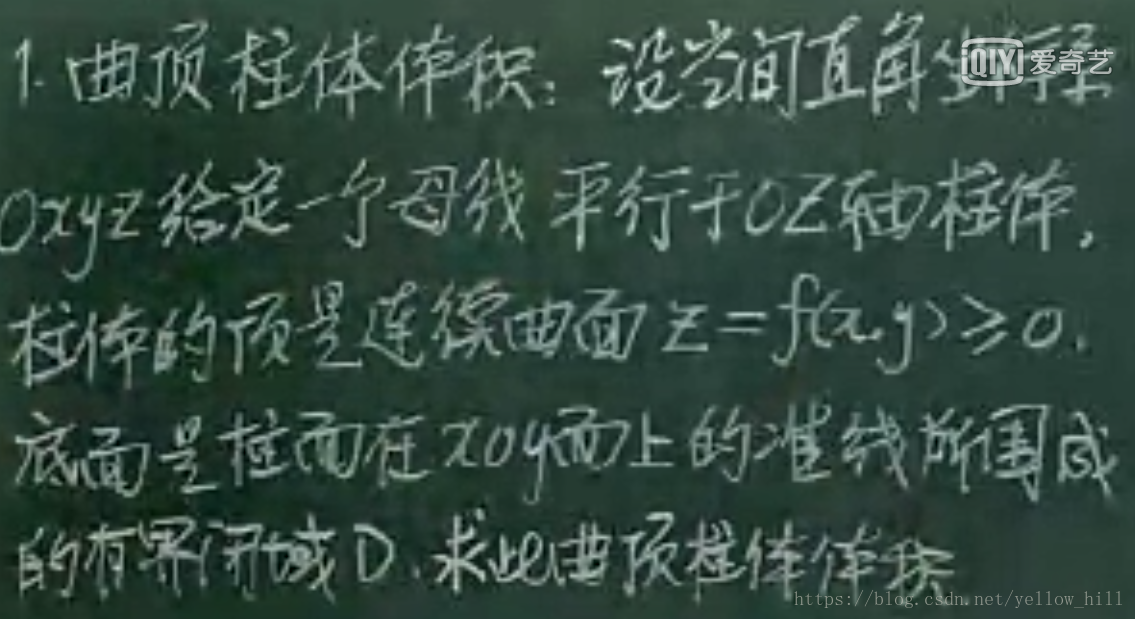 1. 曲顶柱体体积: 设空间直角坐标系
QIY 爱奇艺
Oxyz给定一个母线 平行于OZ轴柱体,
柱体的顶是连续曲面 z=f(x,y)≥0.
底面是柱面在xoy面上的准线所围成
的有界闭域D.求此曲顶柱体体积
https://blog.csdn.net/yellow_hill